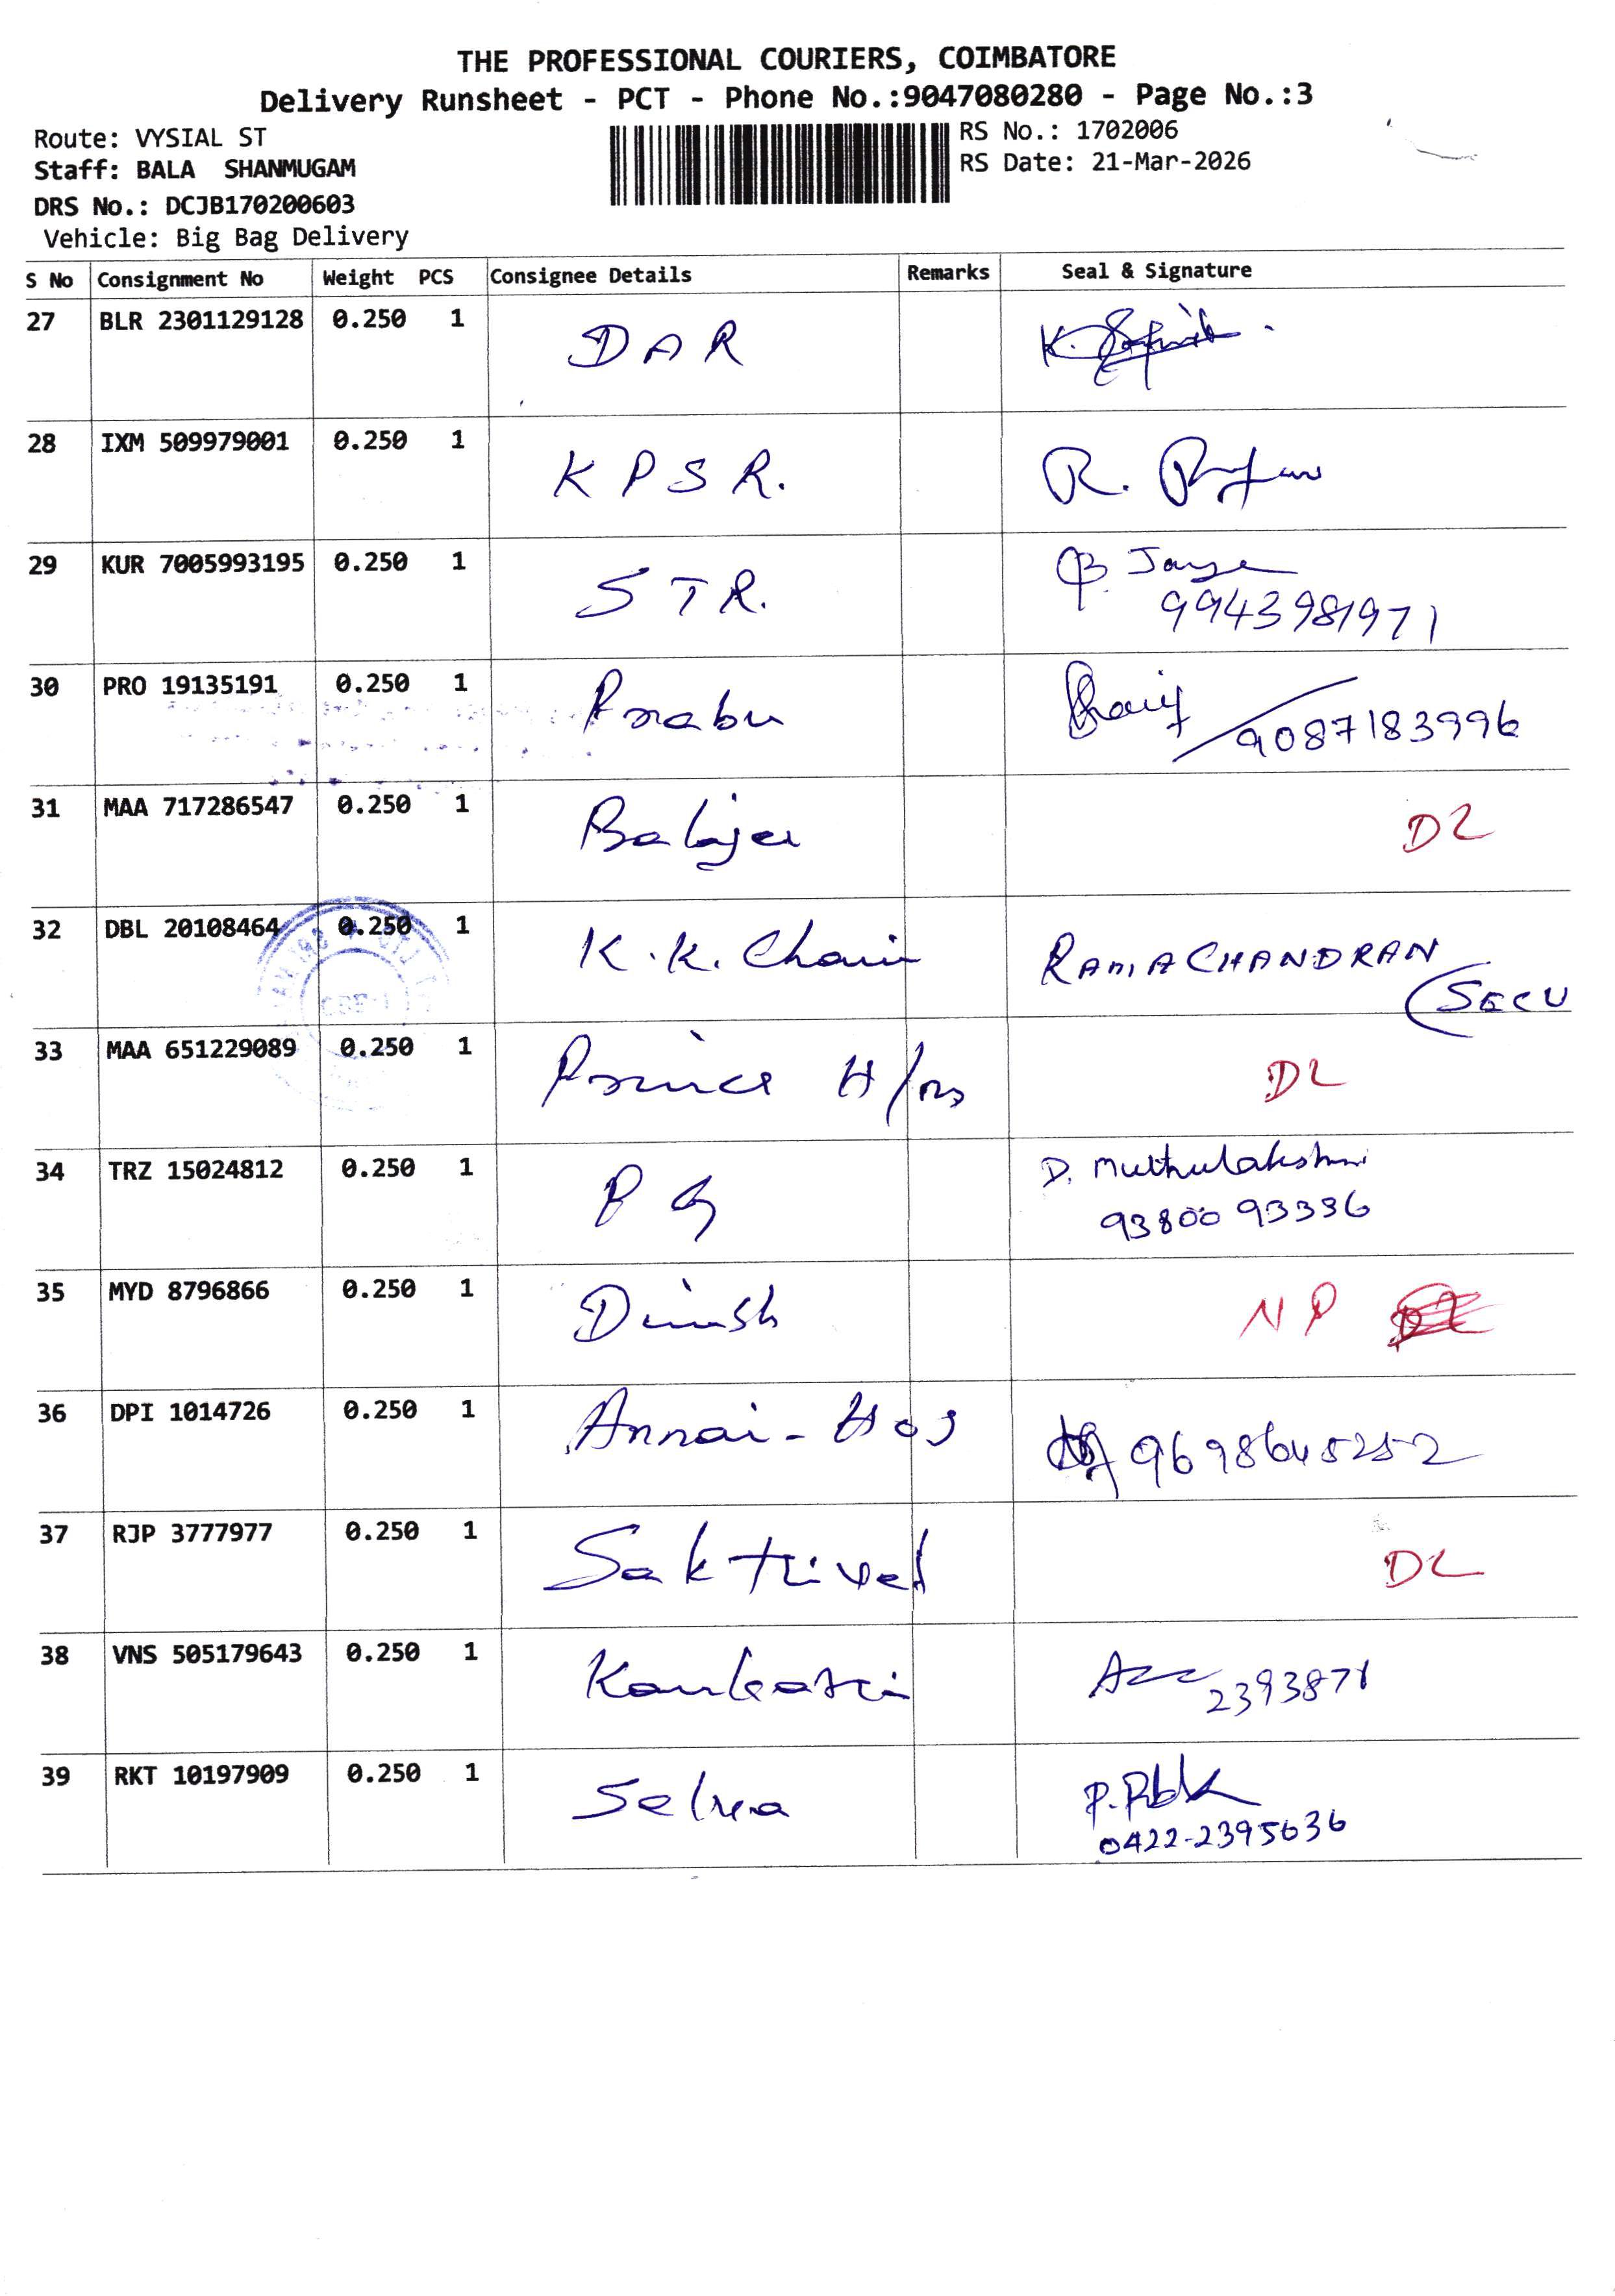 THE PROFESSIONAL COURIERS, COIMBATORE
Delivery Runsheet - PCT - Phone No.:9047080280 - Page No.:3
Route: VYSIAL ST
RS No.: 1702006
Staff: BALA SHANMUGAM
RS Date: 21-Mar-2026
DRS No.: DCJB170200603
Vehicle: Big Bag Delivery
S No Consignment No Weight PCS Consignee Details Remarks Seal & Signature
27 BLR 2301129128 0.250 1 DAR K.
28 IXM 509979001 0.250 1 KPSR. R.
29 KUR 7005993195 0.250 1 STR.
9943981971
30 PRO 19135191 0.250 1 Prabu
9087183996
31 MAA 717286547 0.250 1 Balaji DL
32 DBL 20108464 0.250 1 K.K. Chari RAMACHANDRAN
(SECU
33 MAA 651229089 0.250 1 Prince H/Rs DL
34 TRZ 15024812 0.250 1 PG D. Muthulakshmi
9380093336
35 MYD 8796866 0.250 1 Dinesh NP
36 DPI 1014726 0.250 1 Annai-Hos 9698645252
37 RJP 3777977 0.250 1 Sakthivel DL
38 VNS 505179643 0.250 1 2393871
39 RKT 10197909 0.250 1 Selva
0422-2395636